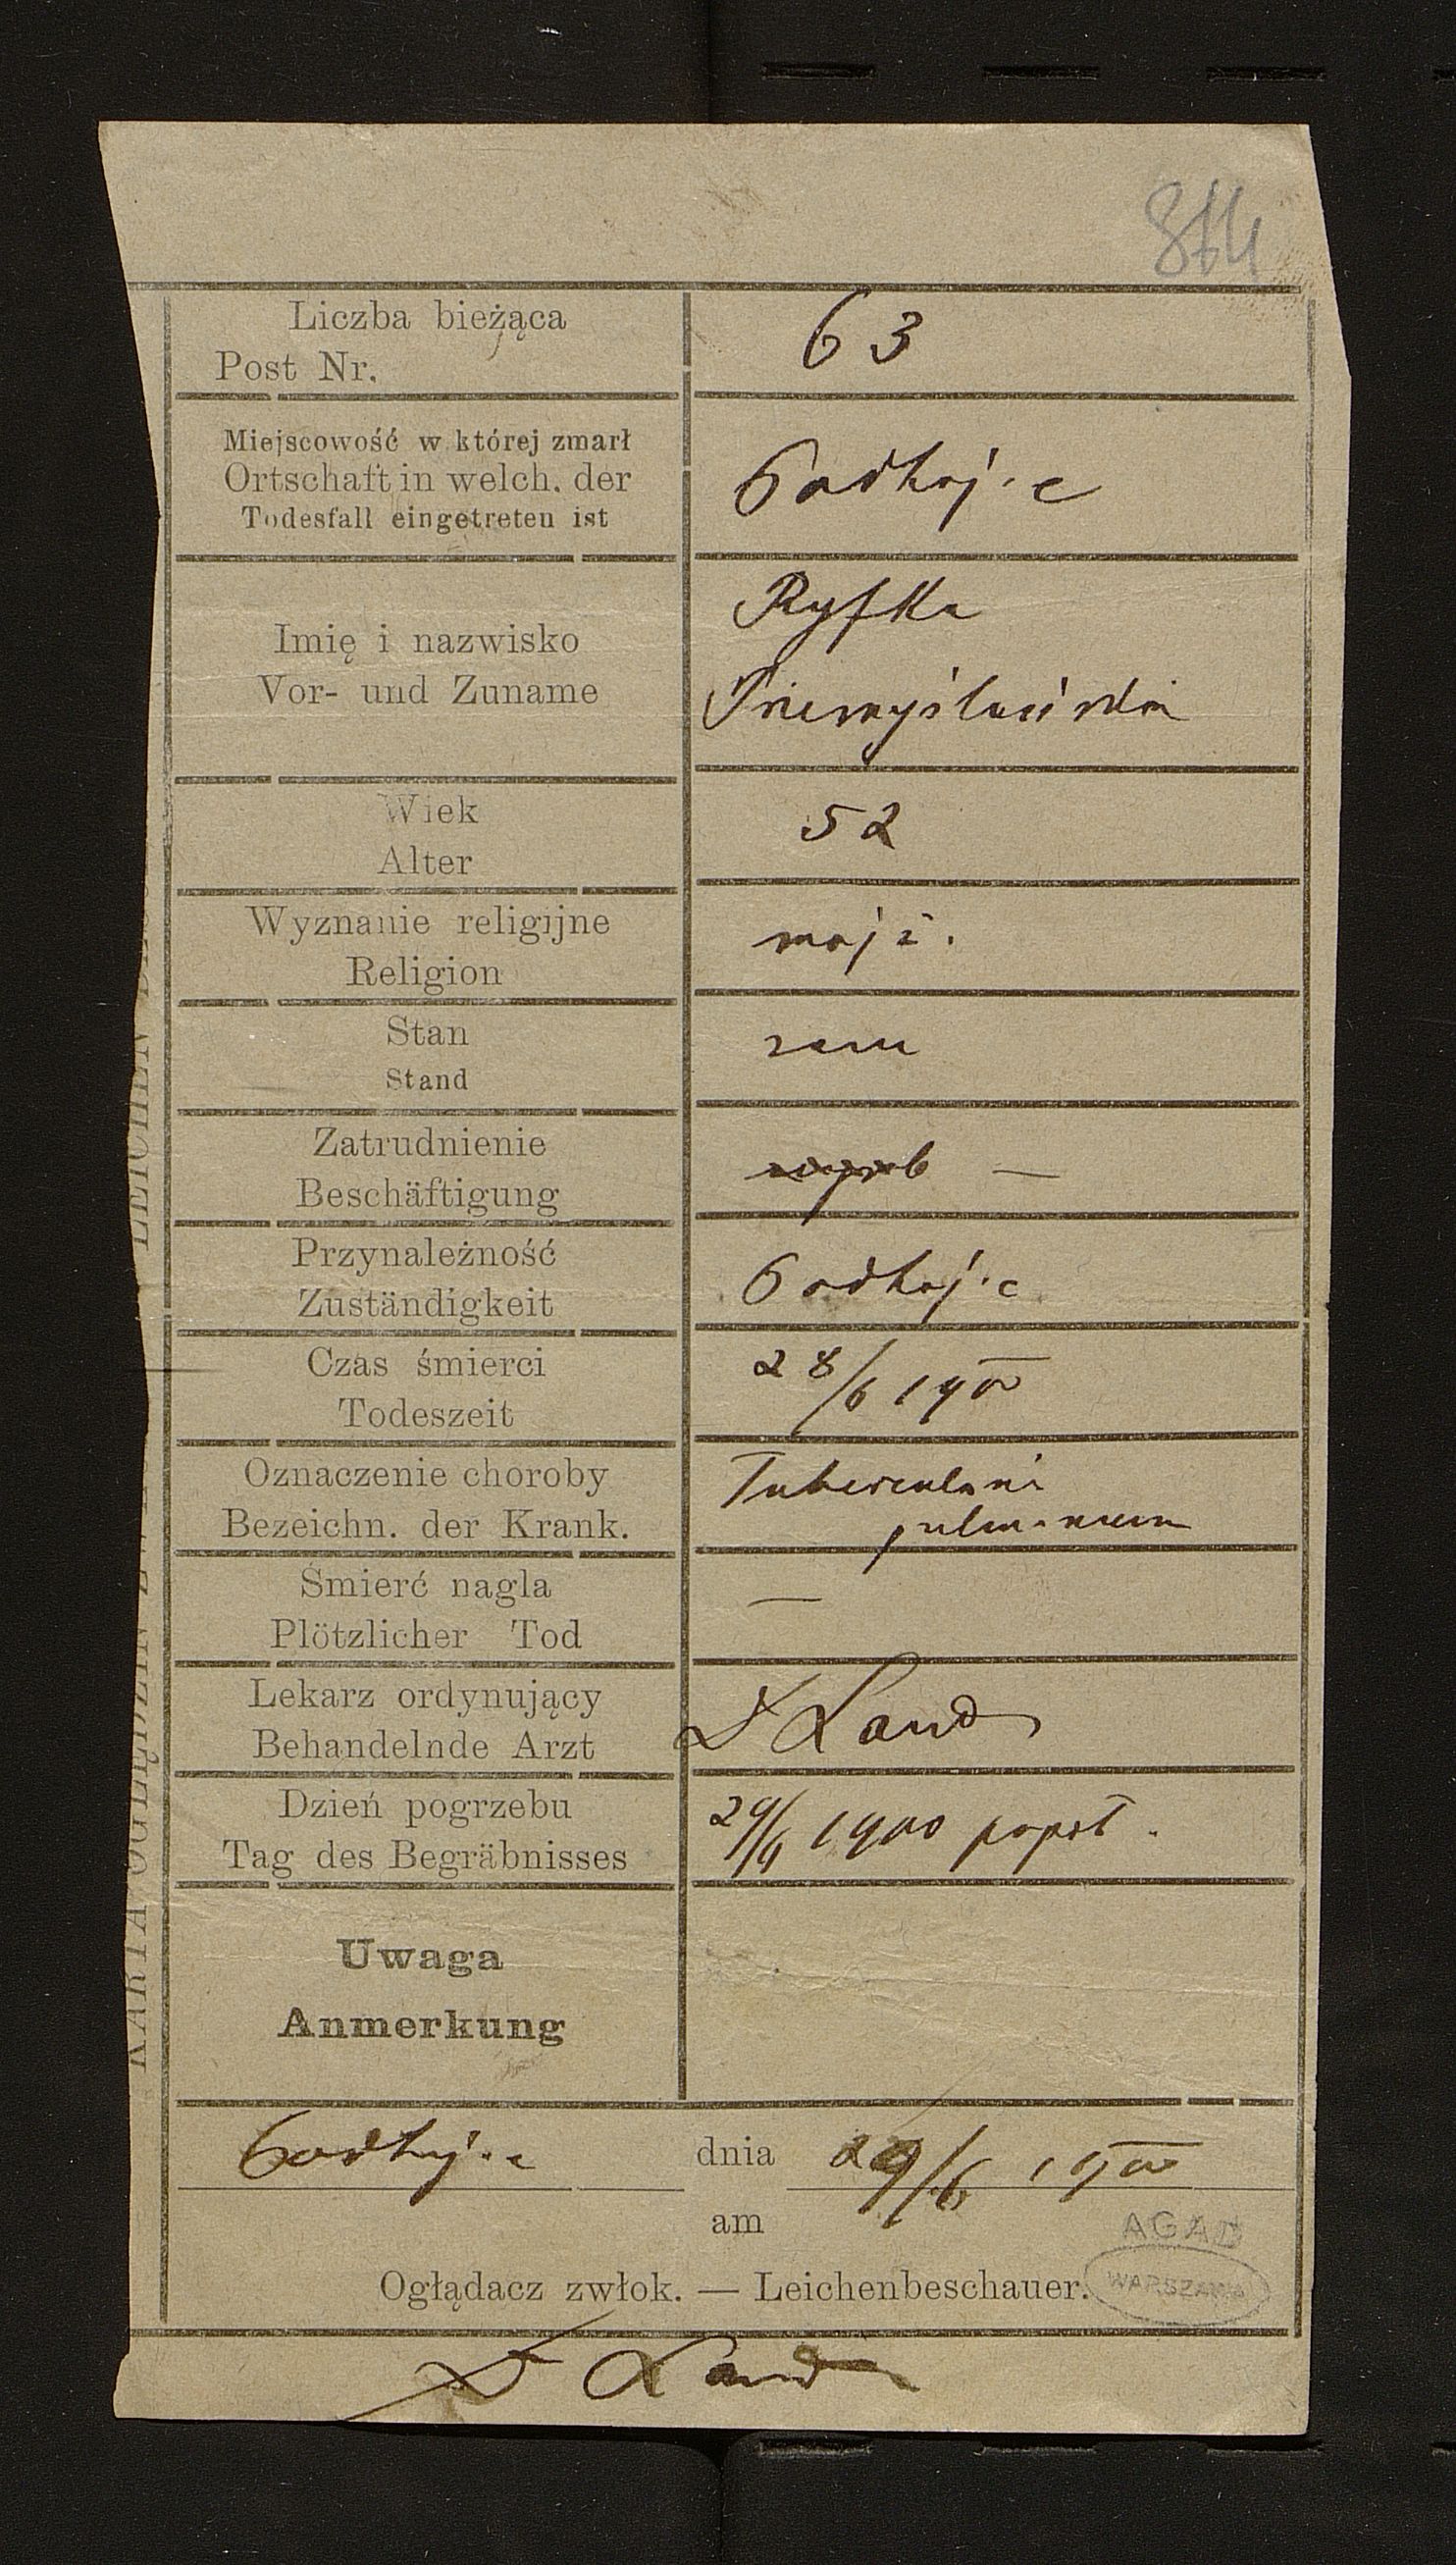 Liczba bieżąca
Post Nr.
63
Miejscowość w której zmarł
Ortschaft in welch. der
Todesfall eingetreten ist
Podhajce
Imię i nazwisko
Vor- und Zuname
Ryfka
Wiek
Alter
52
Wyznanie religijne
Religion
mojż.
Stan
Stand
zam
Zatrudnienie
Beschäftigung
—
Przynależność
Zuständigkeit
Podhajce
Czas śmierci
Todeszeit
28/6 1900
Oznaczenie choroby
Bezeichn. der Krank.
Tuberculosis
pulmonum
Śmierć nagla
Plötzlicher Tod
—
Lekarz ordynujący
Behandelnde Arzt
Dr Land
Dzień pogrzebu
Tag des Begräbnisses
29/6 1900
Uwaga
Anmerkung
Podhajce dnia 29/6 1900
am
AGAD
WARSZAWA
Oglądacz zwłok. — Leichenbeschauer.
Dr Land
KARTA OGLĘDZIN